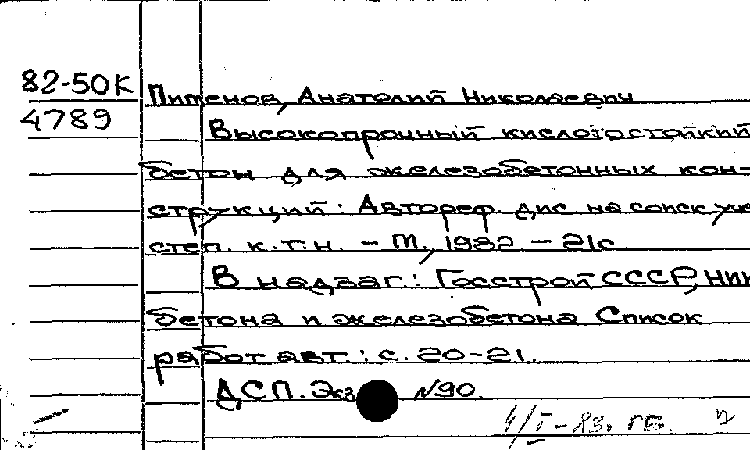 82-50К
4789
Пименов, Анатолий Николаевич
Высокопрочный кислотостойкий
бетон для железобетонных кон-
струкций: Автореф. дис на соиск уче
степ. к.т.н. – М., 1982 – 21с
В надзаг.: Госстрой СССР, НИИ
бетона и железобетона Список
работ авт.: с. 20-21.
ДСП. Экз №90.